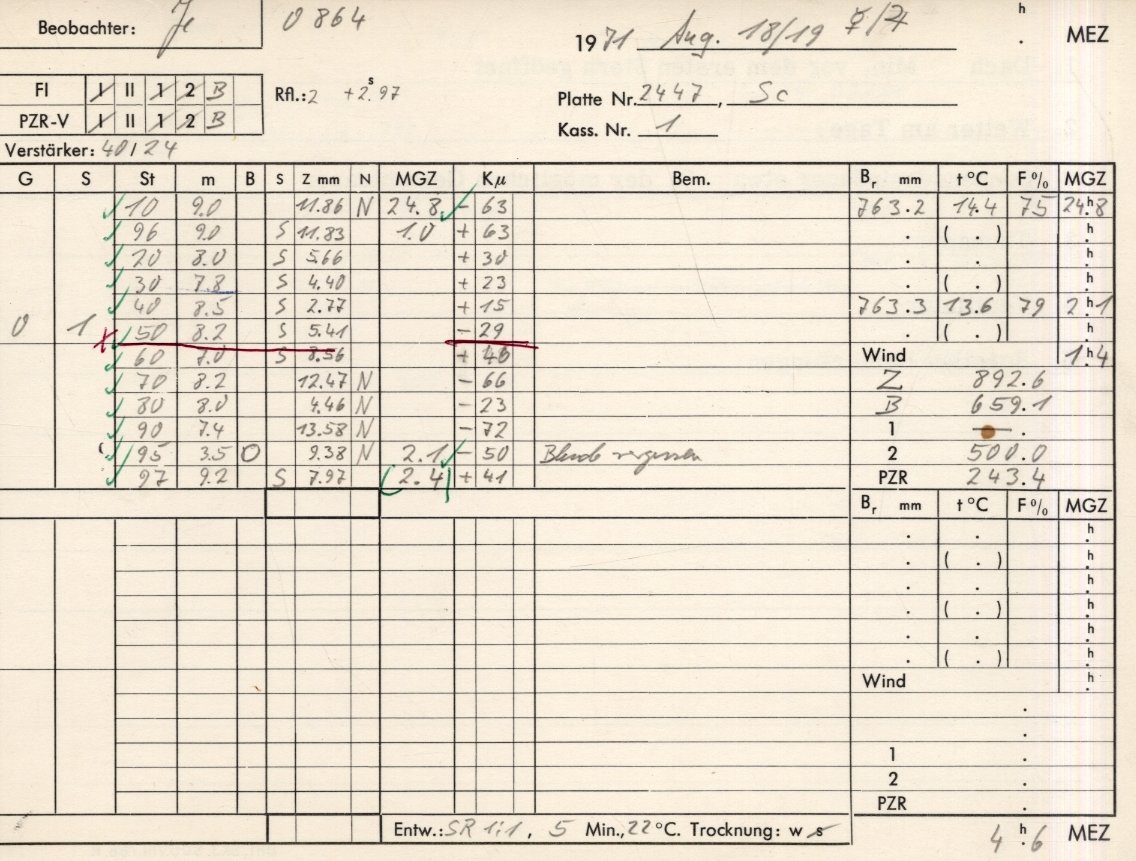 Beobachter: Je 0864 h
19 71 Aug. 18/19 ☿/♃ . MEZ
FI I II 1 2 B Rfl.: 2 +2.ˢ97
Platte Nr. 2447, Sc
PZR-V I II 1 2 B
Kass. Nr. 1
Verstärker: 40/24
G S St m B S Z mm N MGZ Kμ Bem. Bᵣ mm t°C F% MGZ
10 9.0 11.86 N 24.8 - 63 763.2 14.4 75 24.ʰ8
96 9.0 S 11.83 1.0 + 63 . ( . ) .ʰ
20 8.0 S 5.66 + 30 . . .ʰ
30 7.8 S 4.40 + 23 . ( . ) .ʰ
40 8.5 S 2.77 + 15 763.3 13.6 79 2.ʰ1
0 1 x 50 8.2 S 5.41 - 29 . ( . ) .ʰ
60 7.0 S 8.56 + 46 Wind 1.ʰ4
70 8.2 12.47 N - 66 Z 892.6
80 8.0 4.46 N - 23 B 659.1
90 7.4 13.58 N - 72 1 — .
95 3.5 O 9.38 N 2.1 - 50 Blende vergessen 2 500.0
97 9.2 S 7.97 (2.4) + 41 PZR 243.4
Bᵣ mm t°C F% MGZ
. . .ʰ
. ( . ) .ʰ
. . .ʰ
. ( . ) .ʰ
. . .ʰ
. ( . ) .ʰ
Wind .ʰ
.
.
1 .
2 .
PZR .
Entw.: SR 1:1, 5 Min., 22°C. Trocknung: w s 4.ʰ6 MEZ